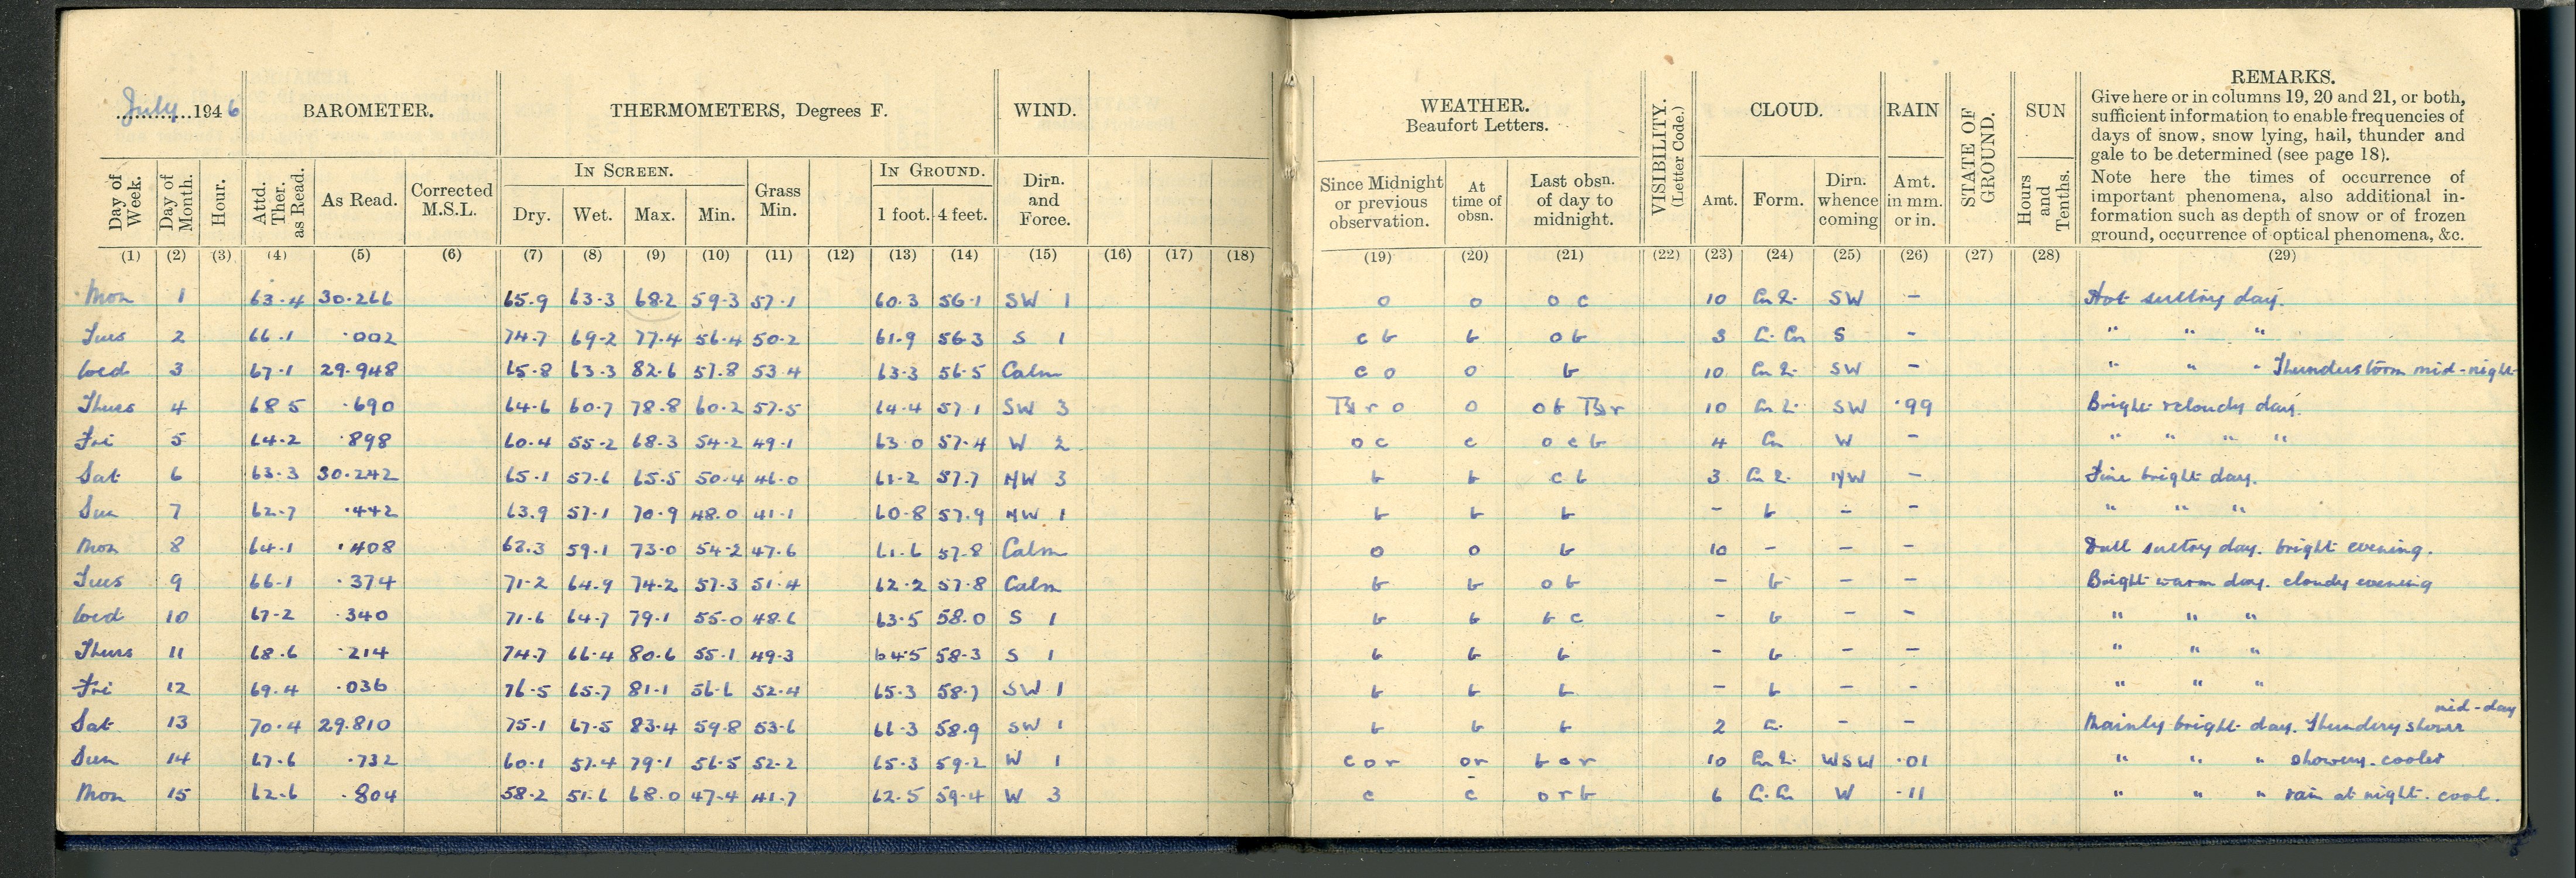 July 1946 BAROMETER. THERMOMETERS, Degrees F. WIND. WEATHER. Beaufort Letters. VISIBILITY. (Letter Code.) CLOUD. RAIN STATE OF GROUND. SUN REMARKS.
Give here or in columns 19, 20 and 21, or both,
sufficient information to enable frequencies of
days of snow, snow lying, hail, thunder and
gale to be determined (see page 18).
Note here the times of occurrence of
important phenomena, also additional in-
formation such as depth of snow or of frozen
ground, occurrence of optical phenomena, &c.
IN SCREEN. IN GROUND.
Day of Week. Day of Month. Hour. Attd. Ther. as Read. As Read. Corrected M.S.L. Dry. Wet. Max. Min. Grass Min. 1 foot. 4 feet. Dirn. and Force. Since Midnight or previous observation. At time of obsn. Last obsn. of day to midnight. Amt. Form. Dirn. whence coming Amt. in mm. or in. Hours and Tenths.
(1) (2) (3) (4) (5) (6) (7) (8) (9) (10) (11) (12) (13) (14) (15) (16) (17) (18) (19) (20) (21) (22) (23) (24) (25) (26) (27) (28) (29)
Mon 1 63.4 30.266 65.9 63.3 68.2 59.3 57.1 60.3 56.1 SW 1 o o o c 10 SW - Hot sultry day.
Tues 2 66.1 .002 74.7 69.2 77.4 56.4 50.2 61.9 56.3 S 1 c b b o b 3 S - " " "
Wed 3 67.1 29.948 65.8 63.3 82.6 57.8 53.4 63.3 56.5 Calm c o o b 10 SW - " " " Thunderstorm mid-night
Thurs 4 68.5 .690 64.6 60.7 78.8 60.2 57.5 64.4 57.1 SW 3 r o o o b r 10 SW .99 Bright cloudy day.
Fri 5 64.2 .898 60.4 55.2 68.3 54.2 49.1 63.0 57.4 W 2 o c c o c b 4 Cu W - " " " "
Sat 6 63.3 30.242 65.1 57.6 65.5 50.4 46.0 61.2 57.7 NW 3 b b c b 3 NW - Fine bright day.
Sun 7 62.7 .442 63.9 57.1 70.9 48.0 41.1 60.8 57.9 NW 1 b b b - b - - " " "
Mon 8 64.1 .408 63.3 59.1 73.0 54.2 47.6 61.6 57.8 Calm o o b 10 - - - Dull sultry day. bright evening.
Tues 9 66.1 .374 71.2 64.9 74.2 57.3 51.4 62.2 57.8 Calm b b o b - b - - Bright warm day. cloudy evening
Wed 10 67.2 .340 71.6 64.7 79.1 55.0 48.6 63.5 58.0 S 1 b b b c - b - - " " "
Thurs 11 68.6 .214 74.7 66.4 80.6 55.1 49.3 64.5 58.3 S 1 b b b - b - - " " "
Fri 12 69.4 .036 76.5 65.7 81.1 56.6 52.4 65.3 58.7 SW 1 b b b - b - - " " "
Sat 13 70.4 29.810 75.1 67.5 83.4 59.8 53.6 66.3 58.9 SW 1 b b b 2 - - Mainly bright day. Thundery shower mid-day
Sun 14 67.6 .732 60.1 57.4 79.1 56.5 52.2 65.3 59.2 W 1 c o r o r b o r 10 WSW .01 " " " showery. cooler
Mon 15 62.6 .804 58.2 51.6 68.0 47.4 41.7 62.5 59.4 W 3 c c o r b 6 W .11 " " " rain at night. cool.